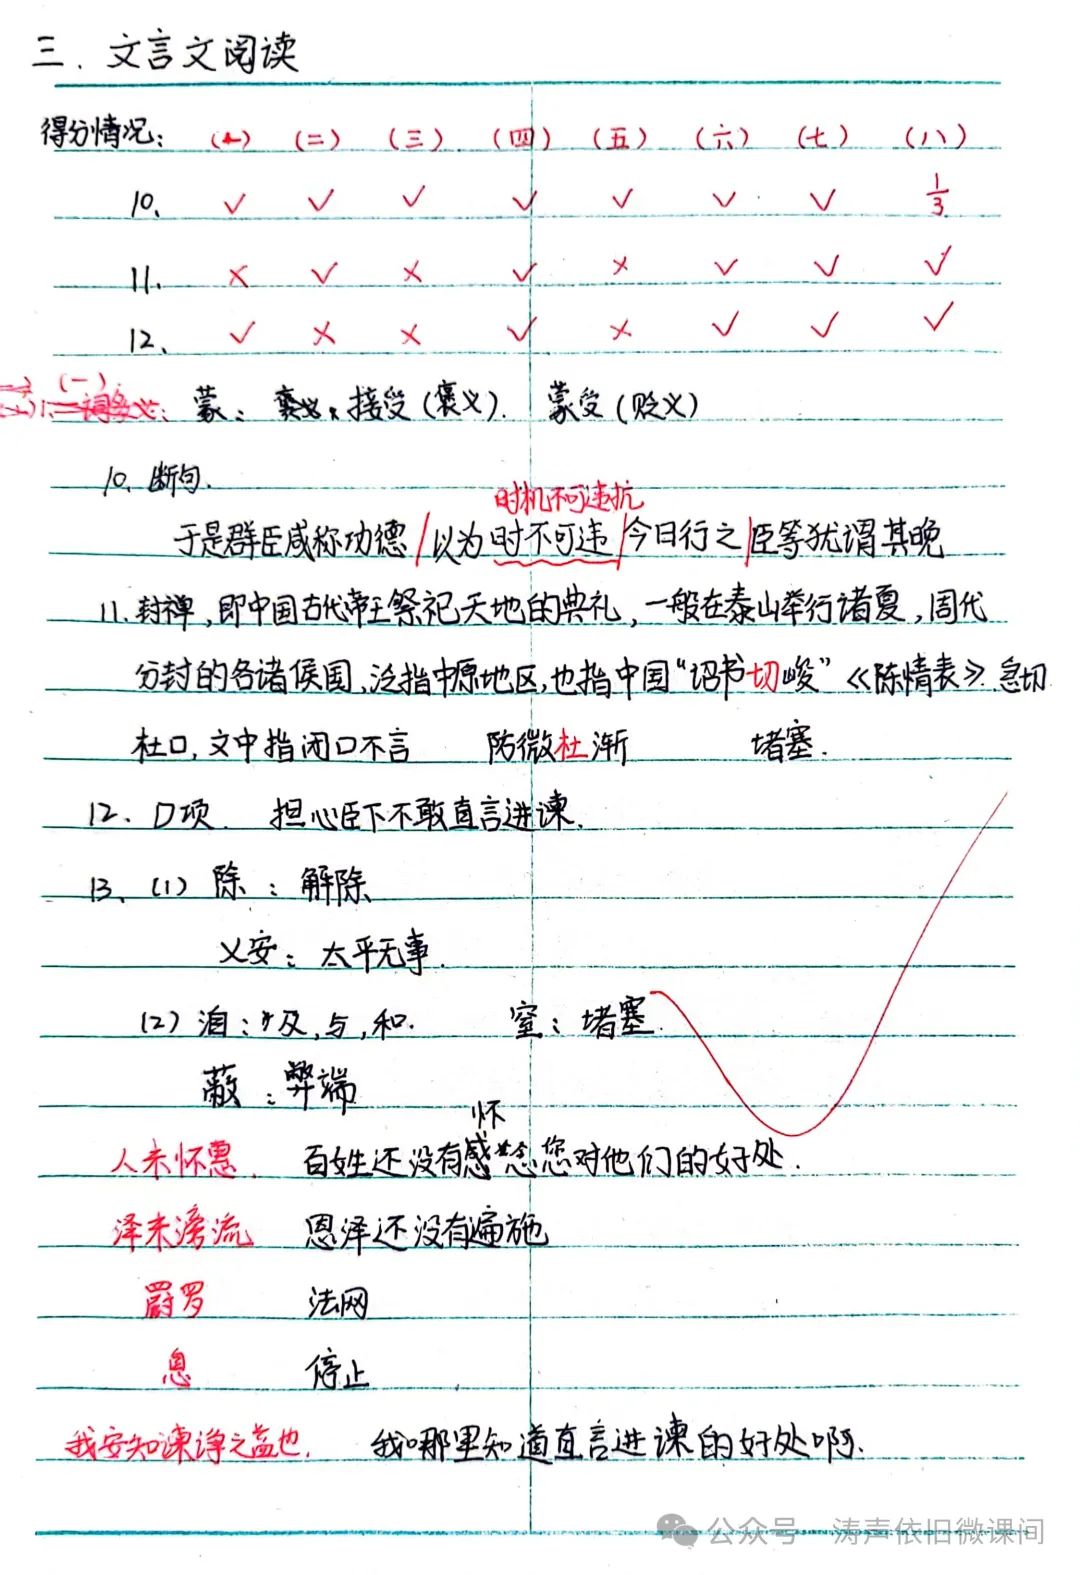 三. 文言文阅读
得分情况: (一) (二) (三) (四) (五) (六) (七) (八)
10. ✓ ✓ ✓ ✓ ✓ ✓ ✓ 1/3
11. × ✓ × ✓ × ✓ ✓ ✓
12. ✓ × × ✓ × ✓ ✓ ✓
(一)
蒙: 接受(褒义). 蒙受(贬义)
10. 断句.
时机不可违抗
于是群臣咸称功德/以为时不可违/今日行之/臣等犹谓其晚
11. 封禅,即中国古代帝王祭祀天地的典礼,一般在泰山举行诸夏,周代
分封的各诸侯国,泛指中原地区,也指中国“诏书切峻”《陈情表》急切
杜口,文中指闭口不言 防微杜渐 堵塞.
12. D项. 担心臣下不敢直言进谏.
13. (1) 除: 解除
乂安: 太平无事.
(2) 洎: 及,与,和. 窒: 堵塞.
蔽: 弊端
怀
人未怀惠. 百姓还没有感念您对他们的好处.
泽未滂流 恩泽还没有遍施
罻罗 法网
息 停止
我安知谏诤之益也. 我哪里知道直言进谏的好处啊.
公众号 · 涛声依旧微课间